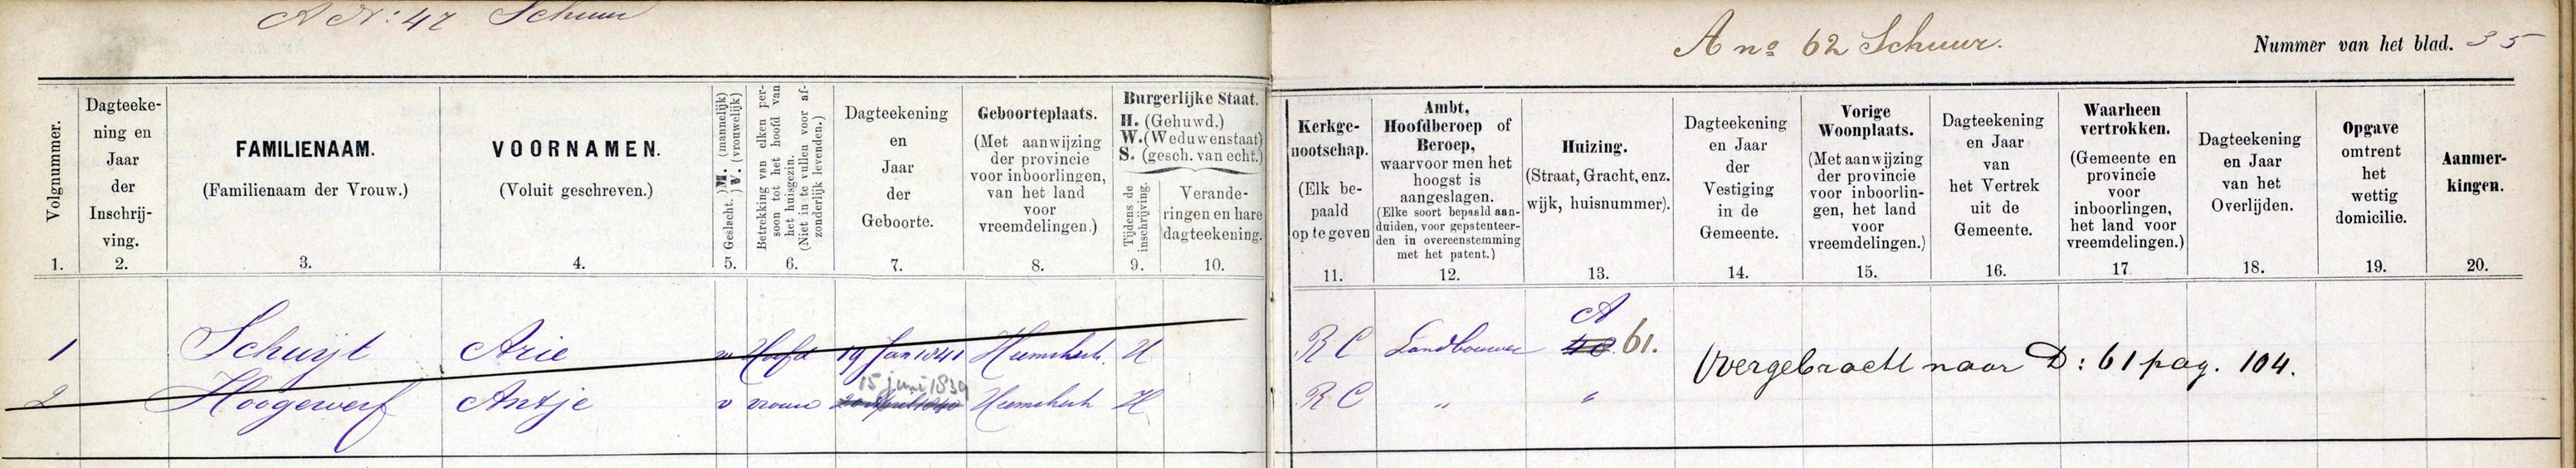 A No: 47 Schuur
A no 62 Schuur.
Nummer van het blad. 35
Volgnummer.
1.
Dagteeke-
ning en
Jaar
der
Inschrij-
ving.
2.
FAMILIENAAM.
(Familienaam der Vrouw.)
3.
VOORNAMEN.
(Voluit geschreven.)
4.
Geslacht. M. (mannelijk)
V. (vrouwelijk)
5.
Betrekking van elken per-
soon tot het hoofd van
het huisgezin.
(Niet in te vullen voor af-
zonderlijk levenden.)
6.
Dagteekening
en
Jaar
der
Geboorte.
7.
Geboorteplaats.
(Met aanwijzing
der provincie
voor inboorlingen,
van het land
voor
vreemdelingen.)
8.
Burgerlijke Staat.
H. (Gehuwd.)
W. (Weduwenstaat)
S. (gesch. van echt.)
Tijdens de
inschrijving.
9.
Verande-
ringen en hare
dagteekening.
10.
Kerkge-
nootschap.
(Elk be-
paald
op te geven
11.
Ambt,
Hoofdberoep of
Beroep,
waarvoor men het
hoogst is
aangeslagen.
(Elke soort bepaald aan-
duiden, voor gepatenteer-
den in overeenstemming
met het patent.)
12.
Huizing.
(Straat, Gracht, enz.
wijk, huisnummer).
13.
Dagteekening
en Jaar
der
Vestiging
in de
Gemeente.
14.
Vorige
Woonplaats.
(Met aanwijzing
der provincie
voor inboorlin-
gen, het land
voor
vreemdelingen.)
15.
Dagteekening
en Jaar
van
het Vertrek
uit de
Gemeente.
16.
Waarheen
vertrokken.
(Gemeente en
provincie
voor
inboorlingen,
het land voor
vreemdelingen.)
17
Dagteekening
en Jaar
van het
Overlijden.
18.
Opgave
omtrent
het
wettig
domicilie.
19.
Aanmer-
kingen.
20.
1 Schuyt Arie m Hoofd 19 Jan 1841 Heemskerk H RC Landbouwer A 61.
Overgebracht naar D: 61 pag. 104.
15 juni 1839
2 Hoogewerf Antje v vrouw Heemskerk H RC " "